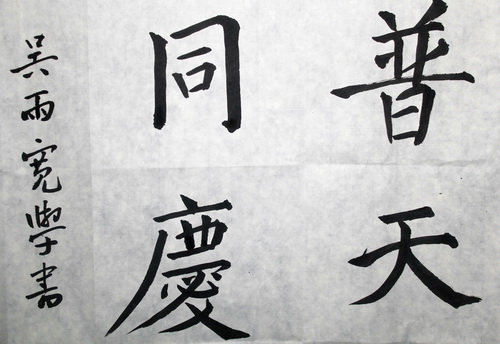 普天
同慶
吳雨寬學書